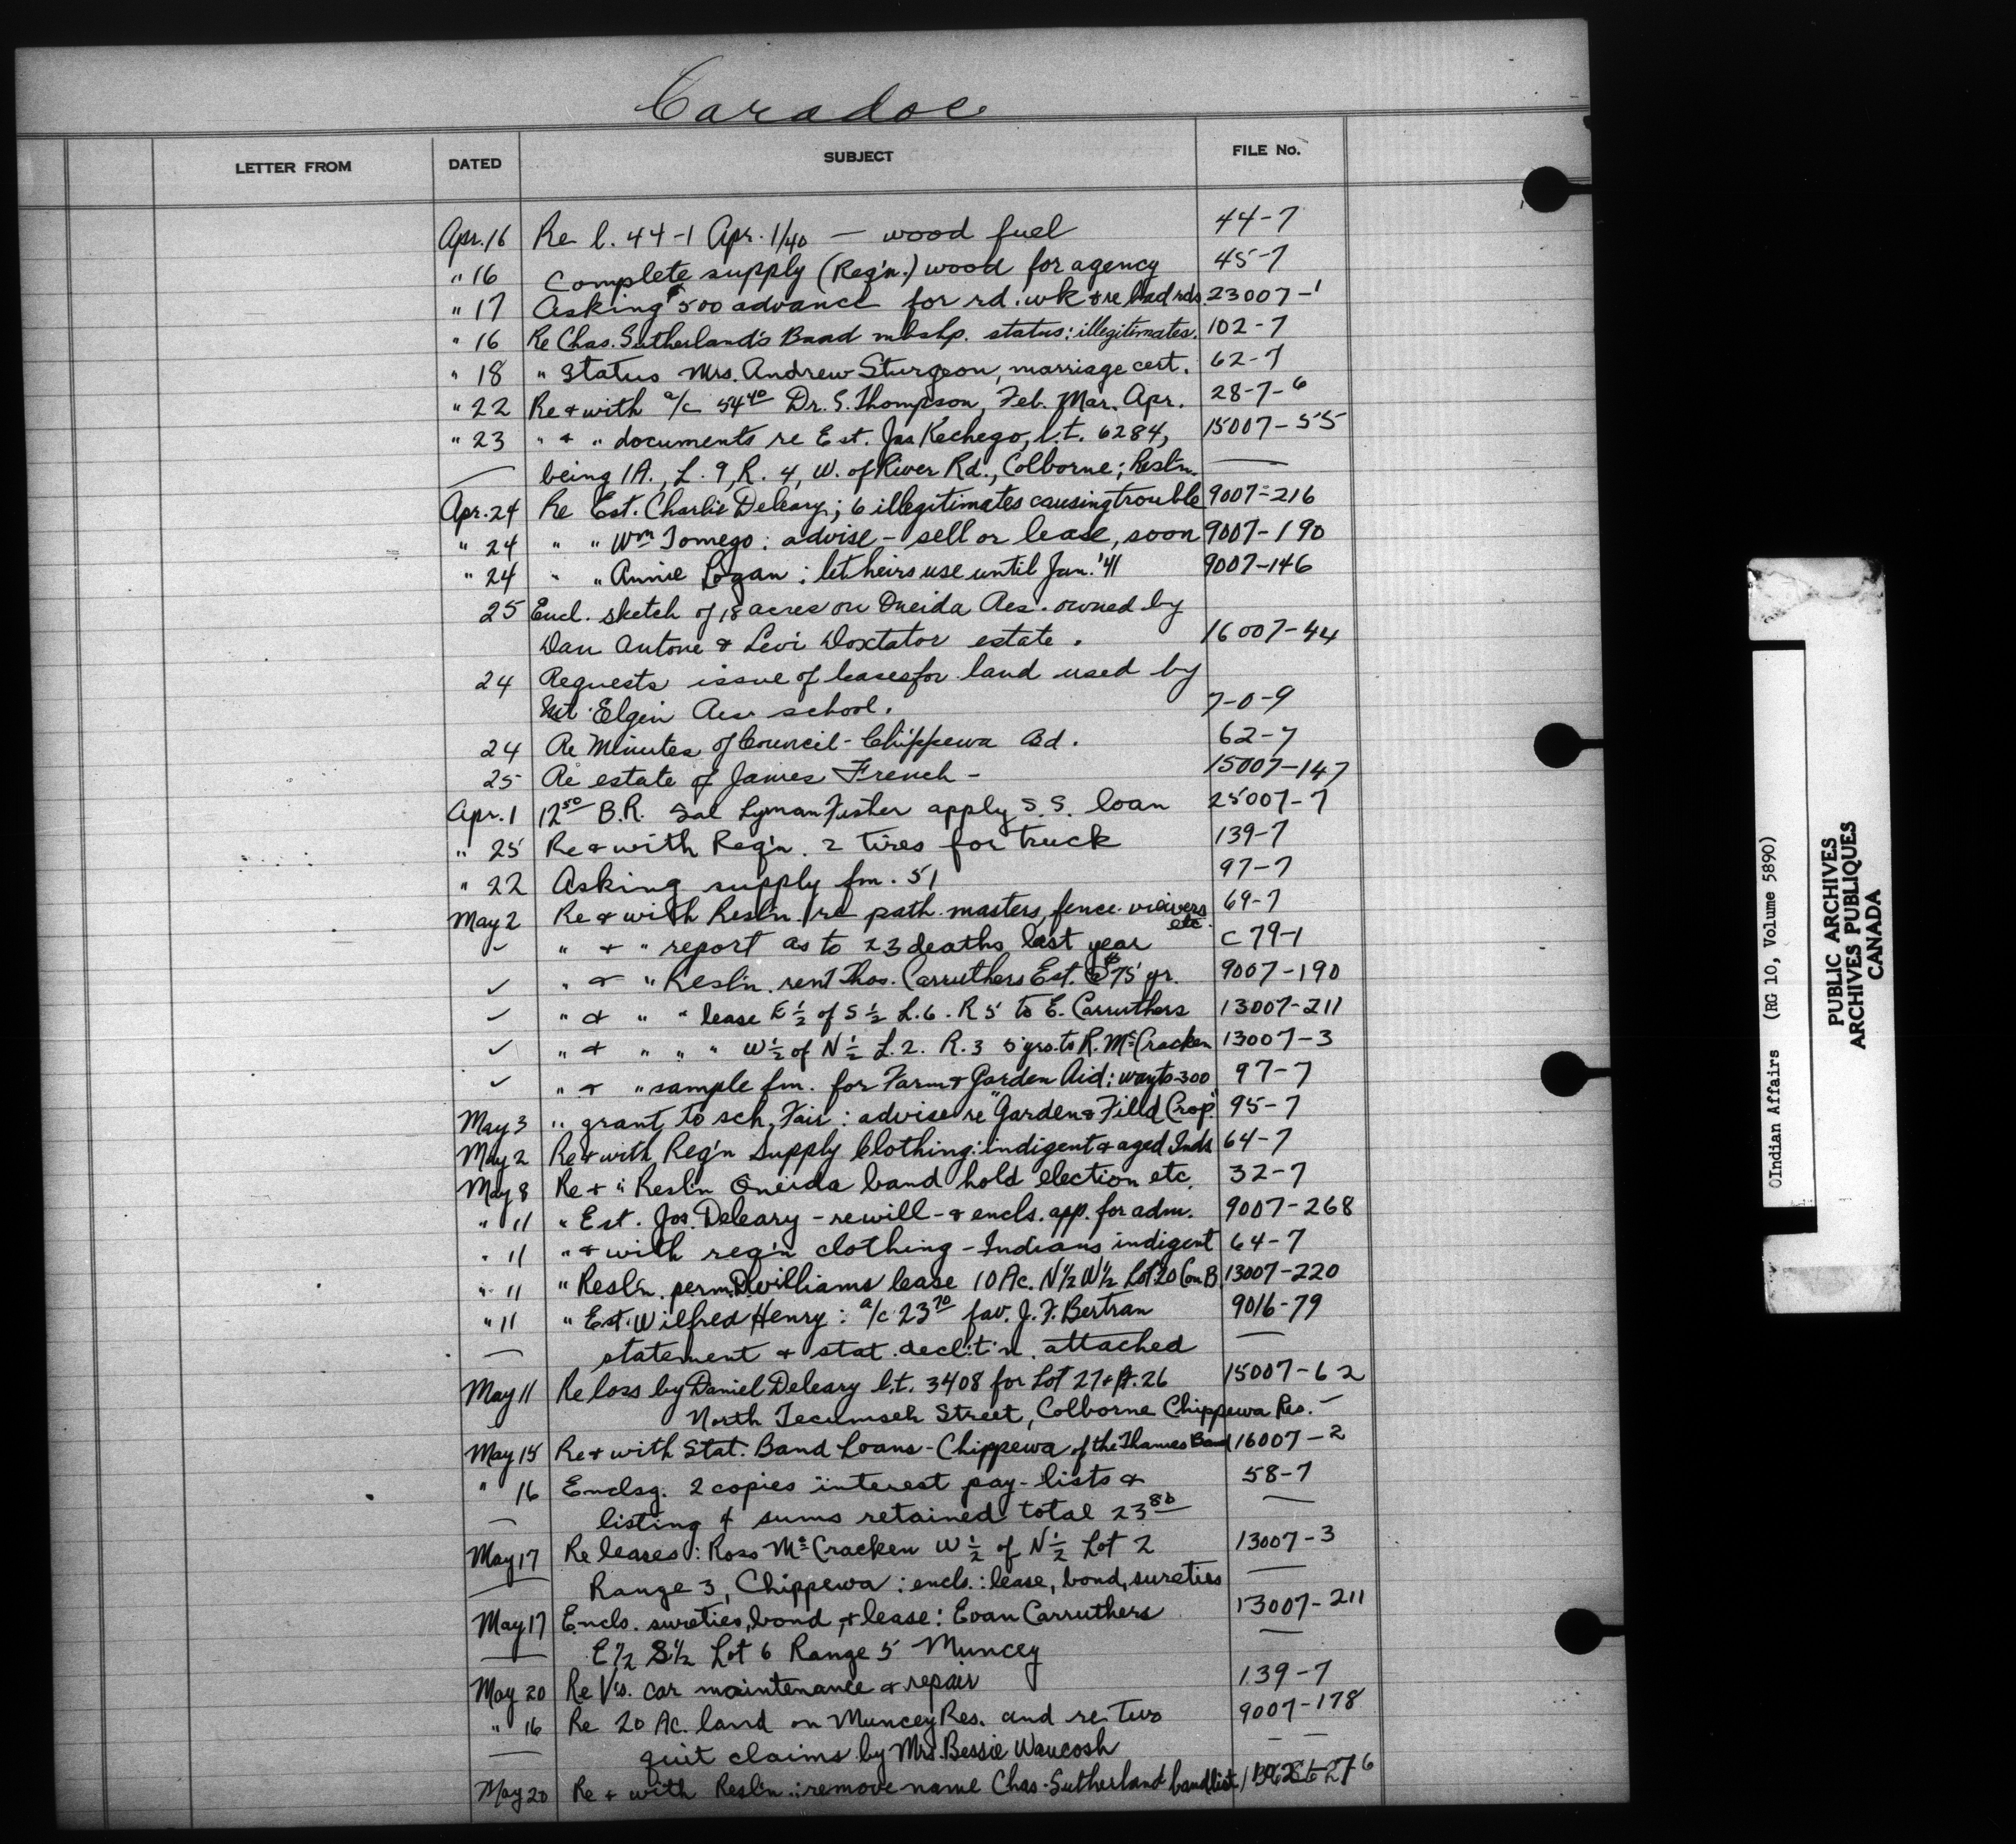 Caradoc
LETTER FROM DATED SUBJECT FILE No.
Apr. 16 Re l. 44-1 Apr. 1/40 — wood fuel 44-7
" 16 Complete supply (Reg'n.) wood for agency 45-7
" 17 Asking $500 advance for rd. wk & re bad rds. 23007-1
" 16 Re Chas. Sutherland's Band mbshp. status: illegitimates. 102-7
" 18 " Status Mrs. Andrew Sturgeon, marriage cert. 62-7
" 22 Re & with a/c 54 40 Dr. S. Thompson, Feb. Mar. Apr. 28-7-6
" 23 " & " documents re Est. Jas Kechego, l.t. 6284, 15007-55
— being 1A., L. 9, R. 4, W. of River Rd., Colborne; Resl'n. —
Apr. 24 Re Est. Charlie Deleary; 6 illegitimates causing trouble 9007-216
" 24 " " Wm Tomego: advise - sell or lease, soon 9007-190
" 24 " " Annie Logan: let heirs use until Jan. '41 9007-146
25 Encl. sketch of 18 acres on Oneida Res. owned by
Dan Antone & Levi Doxtator estate. 16007-44
24 Requests issue of leases for land used by
Mt. Elgin Res school. 7-0-9
24 Re Minutes of Council - Chippewa Bd. 62-7
25 Re estate of James French - 15007-147
Apr. 1 12 50 B.R. Sal Lyman Fisher apply S.S. loan 25007-7
" 25 Re & with Reg'n. 2 tires for truck 139-7
" 22 Asking supply fm. 51 97-7
May 2 Re & with Resl'n. re path masters, fence viewers etc. 69-7
✓ " & " report as to 23 deaths last year C 79-1
✓ " & " Resl'n. rent Thos. Carruthers Est. @ $75 yr. 9007-190
✓ " & " " lease E ½ of S ½ L. 6. R 5 to E. Carruthers 13007-211
✓ " & " " " W ½ of N ½ L. 2. R. 3 5 yrs. to R. McCracken 13007-3
✓ " & " sample fm. for Farm & Garden Aid: 300 97-7
May 3 " grant to sch. Fair: advise re "Garden & Field Crop" 95-7
May 2 Re & with Reg'n Supply Clothing: indigent & aged Inds 64-7
May 8 Re & " Resl'n Oneida band hold election etc. 32-7
" 11 " Est. Jos. Deleary - re will - & encls. app. for adm. 9007-268
" 11 " & with reg'n clothing - Indians indigent 64-7
" 11 " Resl'n. perm. D. Williams lease 10 Ac. N½ W½ Lot 20 Con B. 13007-220
" 11 " Est. Wilfred Henry: a/c 23 70 fav. J. F. Bertran 9016-79
— statement & stat. decl't'n. attached —
May 11 Re loss by Daniel Deleary l.t. 3408 for Lot 27 & pt. 26 15007-62
North Tecumseh Street, Colborne Chippewa Res. -
May 15 Re & with Stat. Band Loans - Chippewa of the Thames Band 16007-2
" 16 Enclsg. 2 copies interest pay-lists & 58-7
— listing of sums retained total 23 80 —
May 17 Re leases: Ross McCracken W ½ of N ½ Lot 2 13007-3
— Range 3, Chippewa: encls.: lease, bond, sureties —
May 17 Encls. sureties, bond, & lease: Evan Carruthers 13007-211
— E½ S½ Lot 6 Range 5 Muncey —
May 20 Re V's. car maintenance & repair 139-7
" 16 Re 20 Ac. land on Muncey Res. and re Two 9007-178
— quit claims by Mrs. Bessie Waucosh —
May 20 Re & with Resl'n.: remove name Chas. Sutherland band list
(Indian Affairs (RG 10, Volume 5890)
PUBLIC ARCHIVES
ARCHIVES PUBLIQUES
CANADA